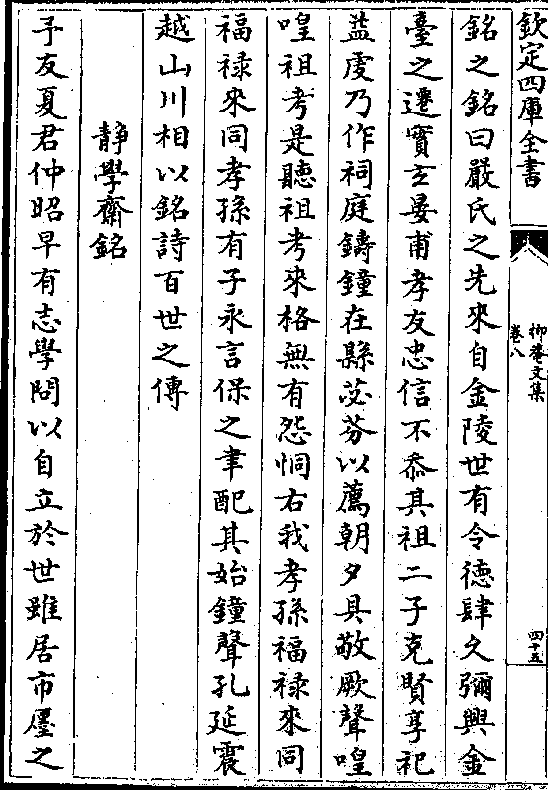 欽定四庫全書
抑菴文集
卷八
四十五
銘之銘曰嚴氏之先來自金陵世有令德肆久彌興金
臺之遷實玄晏甫孝友忠信不忝其祖二子克賢享祀
益虔乃作祠庭鑄鐘在縣苾芬以薦朝夕具敬厥聲喤
喤祖考是聽祖考來格無有怨恫右我孝孫福禄來同
福禄來同孝孫有子永言保之聿配其始鐘聲孔延震
越山川相以銘詩百世之傳
靜學齋銘
予友夏君仲昭早有志學問以自立於世雖居市廛之